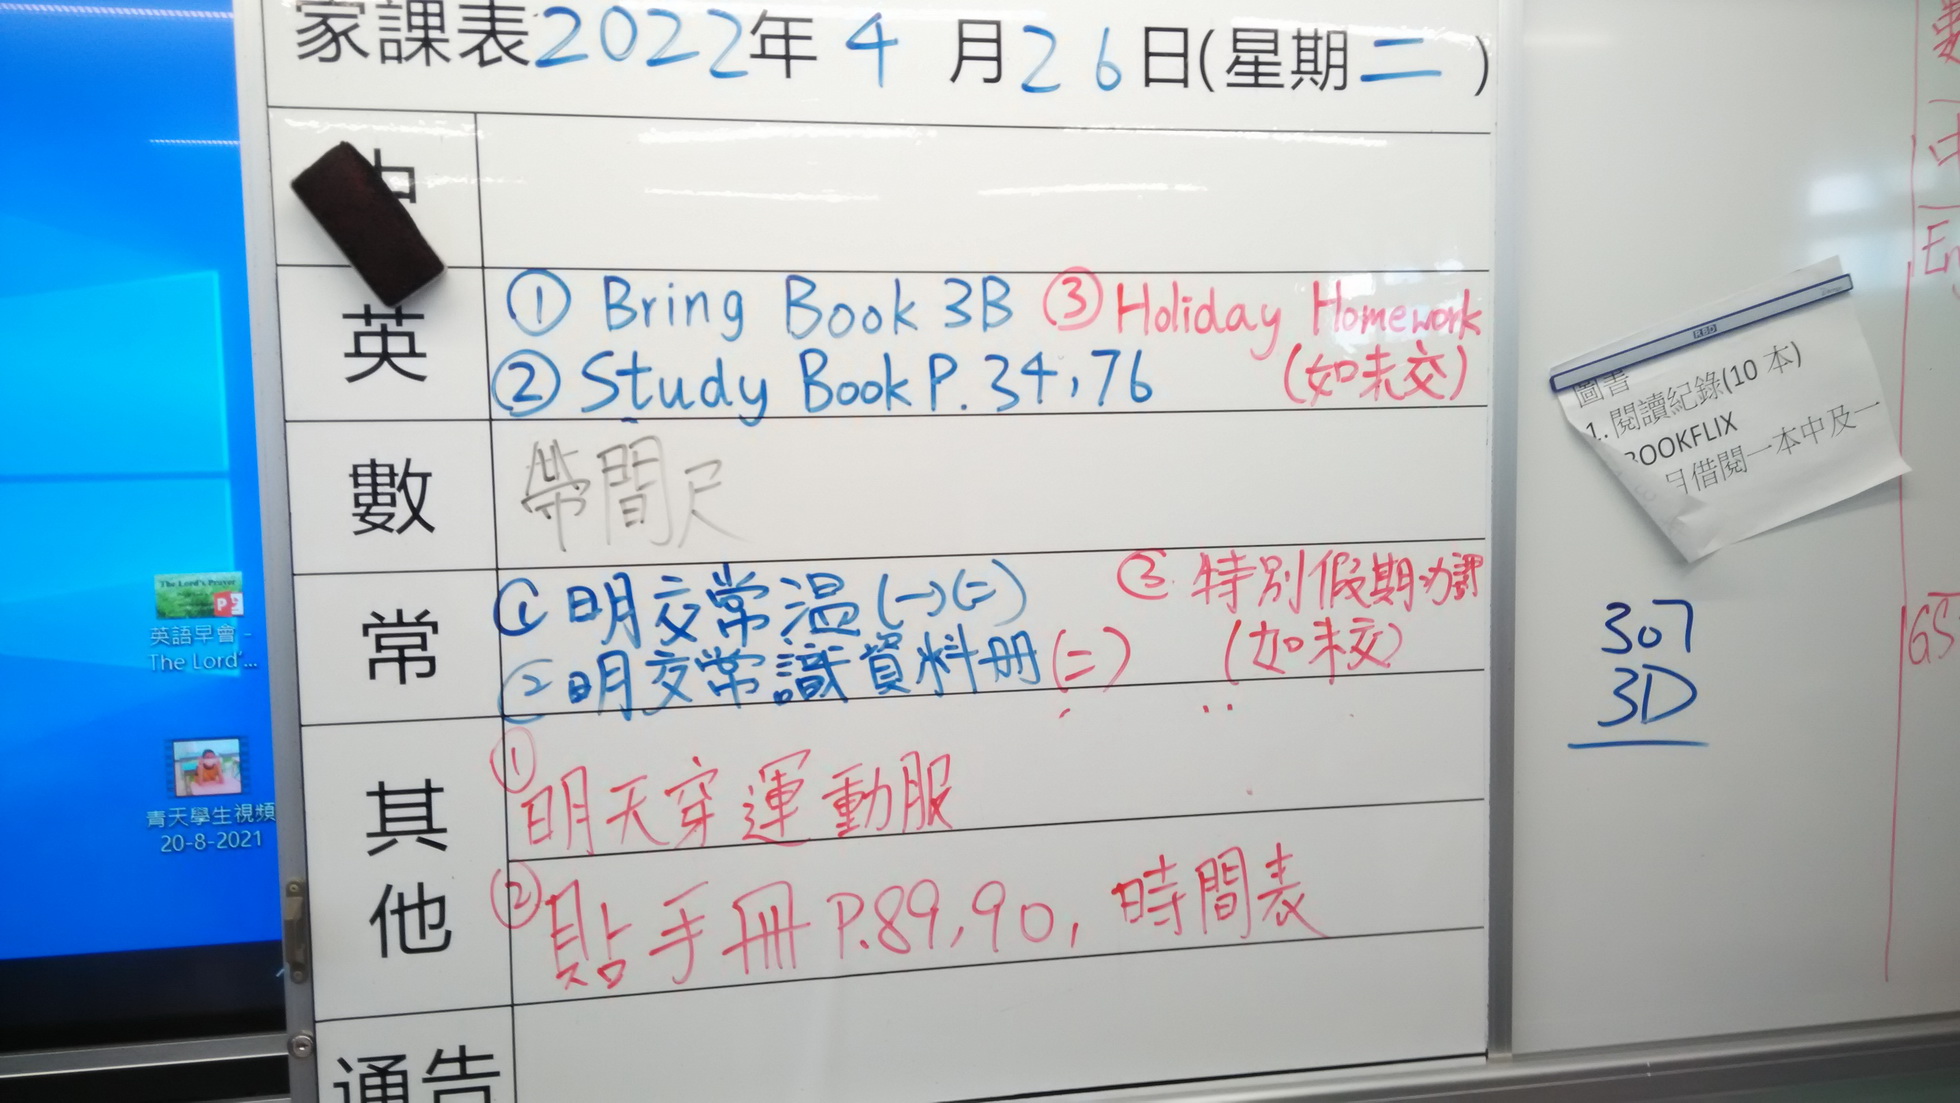 家課表2022年4月26日(星期二)
中
英
① Bring Book 3B
② Study Book P. 34, 76
③ Holiday Homework
(如未交)
數
帶間尺
常
① 明交常溫(一)(二)
② 明交常識資料冊(二)
③ 特別假期功課
(如未交)
其他
① 明天穿運動服
② 貼手冊 P.89, 90, 時間表
通告
The Lord's Prayer
英語早會 -
The Lord'...
青天學生視頻
20-8-2021
圖書
1. 閱讀紀錄(10 本)
BOOKFLIX
借閱一本中及一
307
3D
中
En
GS